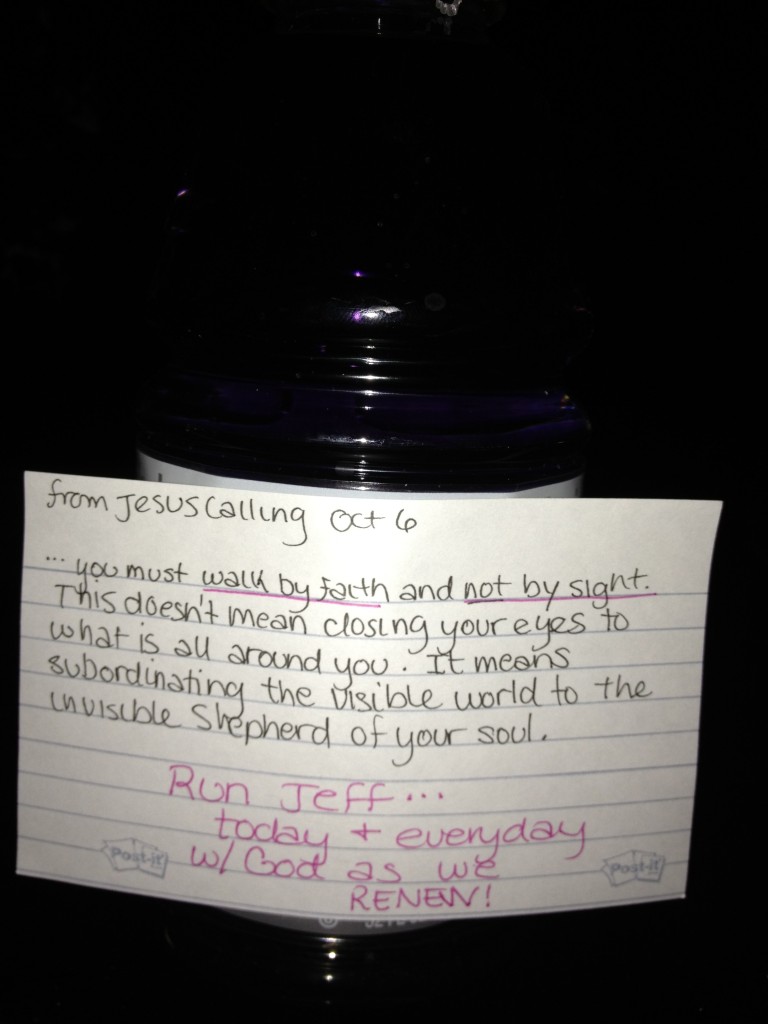 from Jesus Calling Oct 6
... you must walk by faith and not by sight.
This doesn't mean closing your eyes to
what is all around you. It means
subordinating the visible world to the
invisible Shepherd of your soul.
Run Jeff...
today + everyday
w/ God as we
RENEW!
Post-it
Post-it